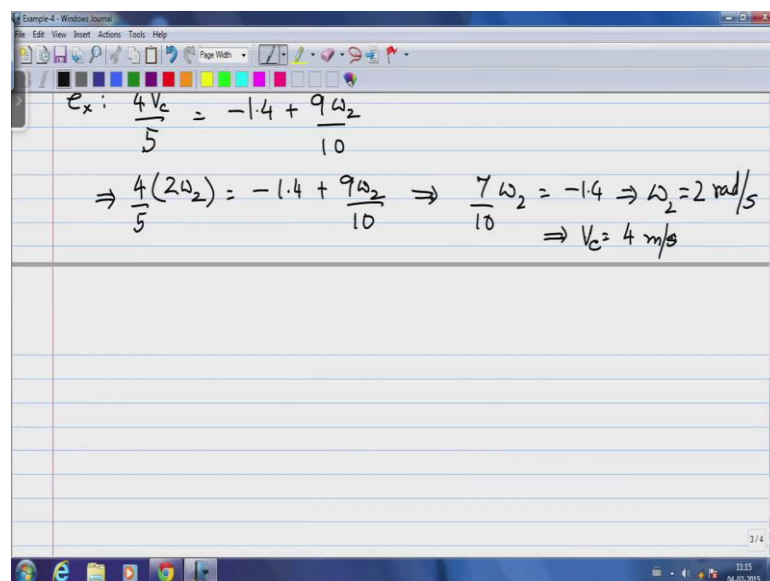 Example-4 - Windows Journal
File Edit View Insert Actions Tools Help
Page Width
eₓ : 4Vc/5 = -1.4 + 9ω₂/10
⇒ 4/5 (2ω₂) = -1.4 + 9ω₂/10 ⇒ 7/10 ω₂ = -1.4 ⇒ ω₂ = 2 rad/s
⇒ Vc = 4 m/s
3/4
11:15
04-02-2015